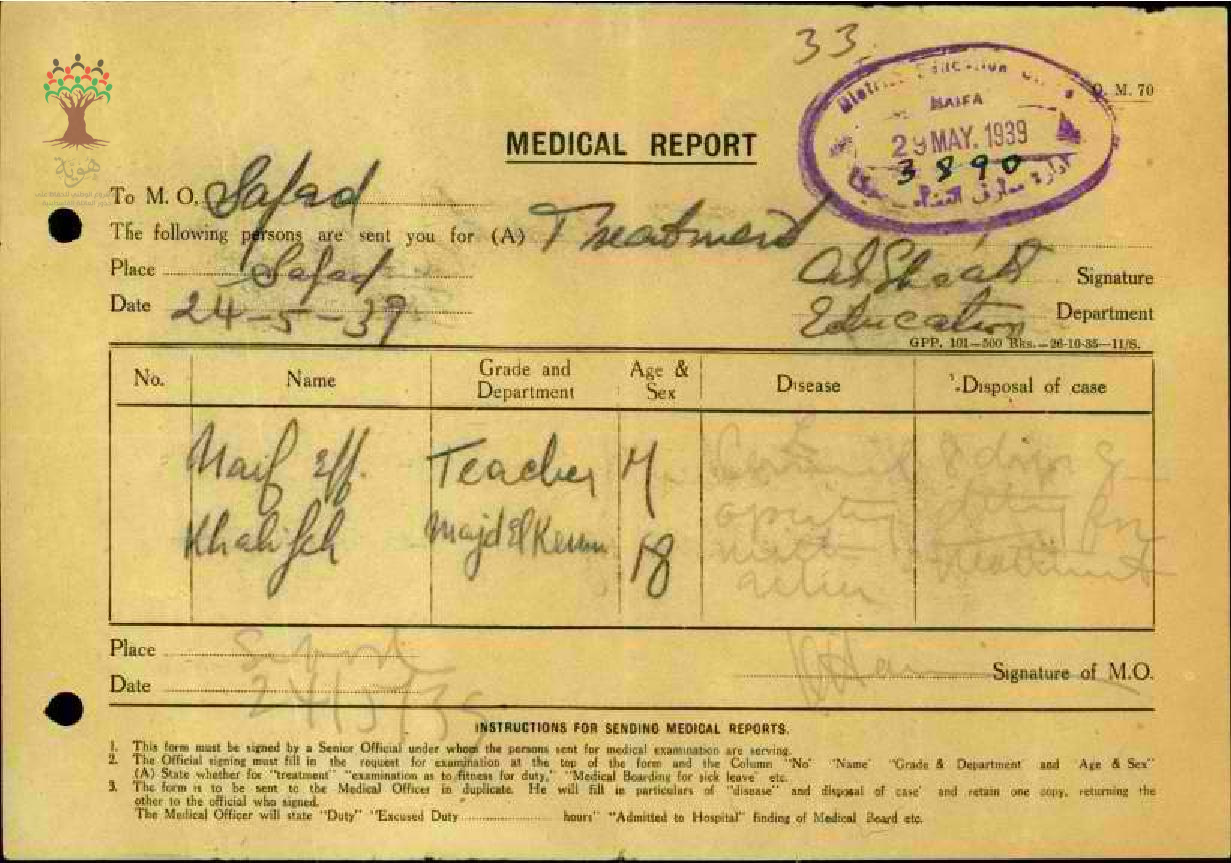 33
District Education Office
HAIFA
29 MAY. 1939
3890
إدارة معارف
O. M. 70
هوية
MEDICAL REPORT
To M. O. Safad
The following persons are sent you for (A) Treatment
Place Safad
Signature
Date 24-5-39
Education Department
GPP. 101—500 Bks.—26-10-35—11/S.
No. Name Grade and Department Age & Sex Disease Disposal of case
Naif Eff. Teacher M
Khalifeh Majd El Kerum 18
treatment
Place Safad
Signature of M.O.
Date 24/5/39
INSTRUCTIONS FOR SENDING MEDICAL REPORTS.
1. This form must be signed by a Senior Official under whom the persons sent for medical examination are serving.
2. The Official signing must fill in the request for examination at the top of the form and the Column "No" 'Name' "Grade & Department and Age & Sex"
(A) State whether for "treatment" "examination as to fitness for duty," "Medical Boarding for sick leave" etc.
3. The form is to be sent to the Medical Officer in duplicate. He will fill in particulars of "disease" and disposal of case' and retain one copy, returning the
other to the official who signed.
The Medical Officer will state "Duty" "Excused Duty hours" "Admitted to Hospital" finding of Medical Board etc.